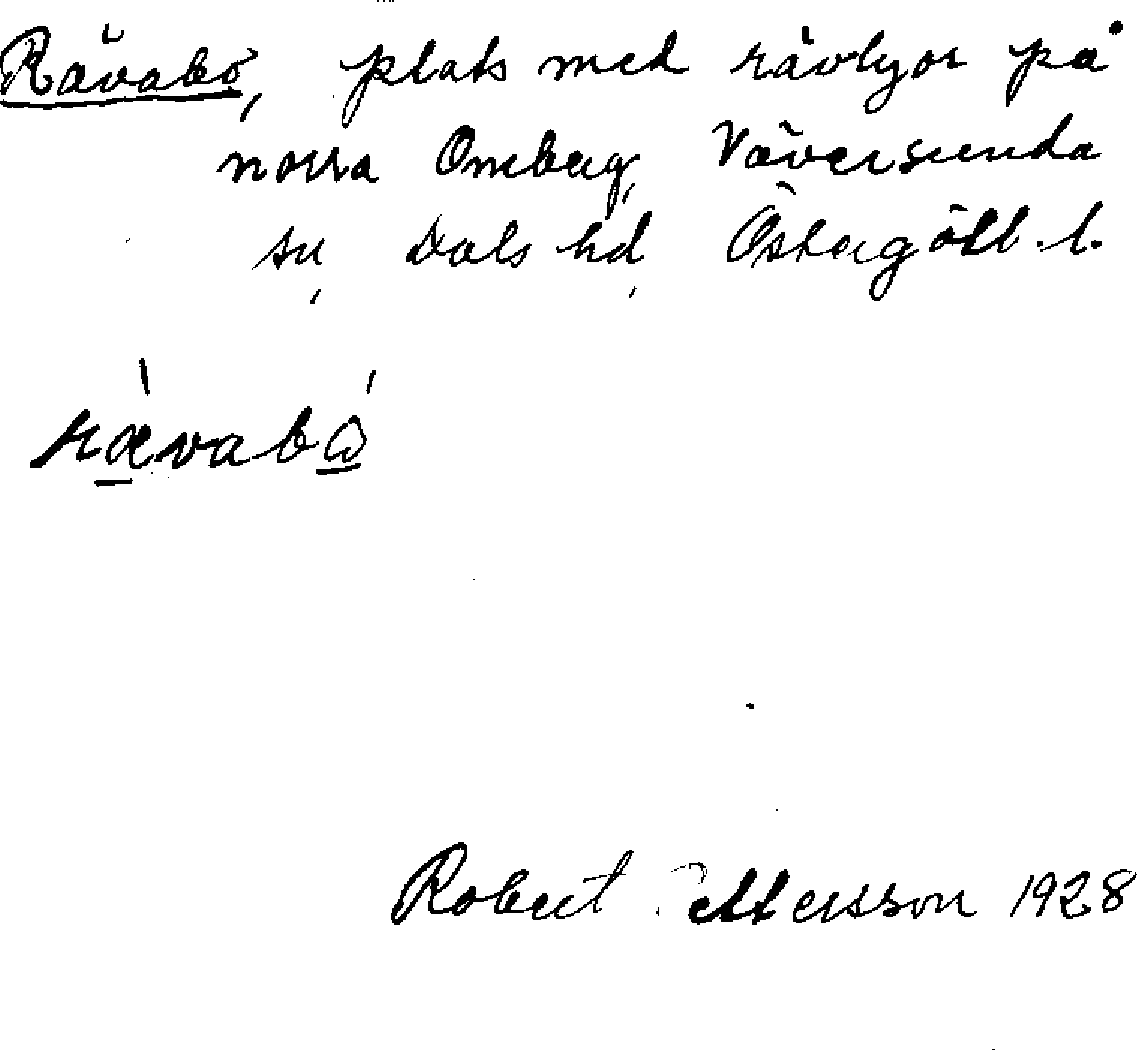 Rävabo, plats med rävlyor på
norra Omberg, Väversunda
sn, Dals hd, Östergötl. l.
rævabω
Robert Pettersson 1928